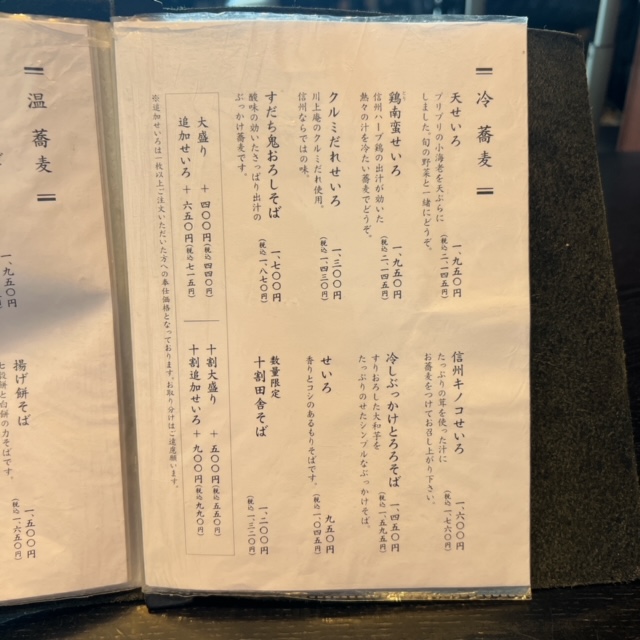 冷蕎麦
天せいろ
プリプリの小海老を天ぷらに
しました。旬の野菜と一緒にどうぞ。
一、九五〇円
(税込二、一四五円)
鶏南蛮せいろ
信州ハーブ鶏の出汁が効いた
熱々の汁を冷たい蕎麦でどうぞ。
一、九五〇円
(税込二、一四五円)
クルミだれせいろ
川上庵のクルミだれ使用。
信州ならではの味。
一、三〇〇円
(税込一、四三〇円)
すだち鬼おろしそば
酸味の効いたさっぱり出汁の
ぶっかけ蕎麦です。
一、七〇〇円
(税込一、八七〇円)
信州キノコせいろ
たっぷりの茸を使った汁に
お蕎麦をつけてお召し上がり下さい。
一、六〇〇円
(税込一、七六〇円)
冷しぶっかけとろろそば
すりおろした大和芋を
たっぷりのせたシンプルなぶっかけそば。
一、四五〇円
(税込一、五九五円)
せいろ
香りとコシのあるもりそばです。
九五〇円
(税込一、〇四五円)
数量限定
十割田舎そば
一、二〇〇円
(税込一、三二〇円)
大盛り + 四〇〇円(税込四四〇円)
追加せいろ + 六五〇円(税込七一五円)
十割大盛り + 五〇〇円(税込五五〇円)
十割追加せいろ + 九〇〇円(税込九九〇円)
※追加せいろは一枚以上ご注文いただいた方への奉仕価格となっております。お取り分けはご遠慮願います。
温蕎麦
一、九五〇円
揚げ餅そば
の力そばです。
一、五〇〇円
(税込一、六五〇円)